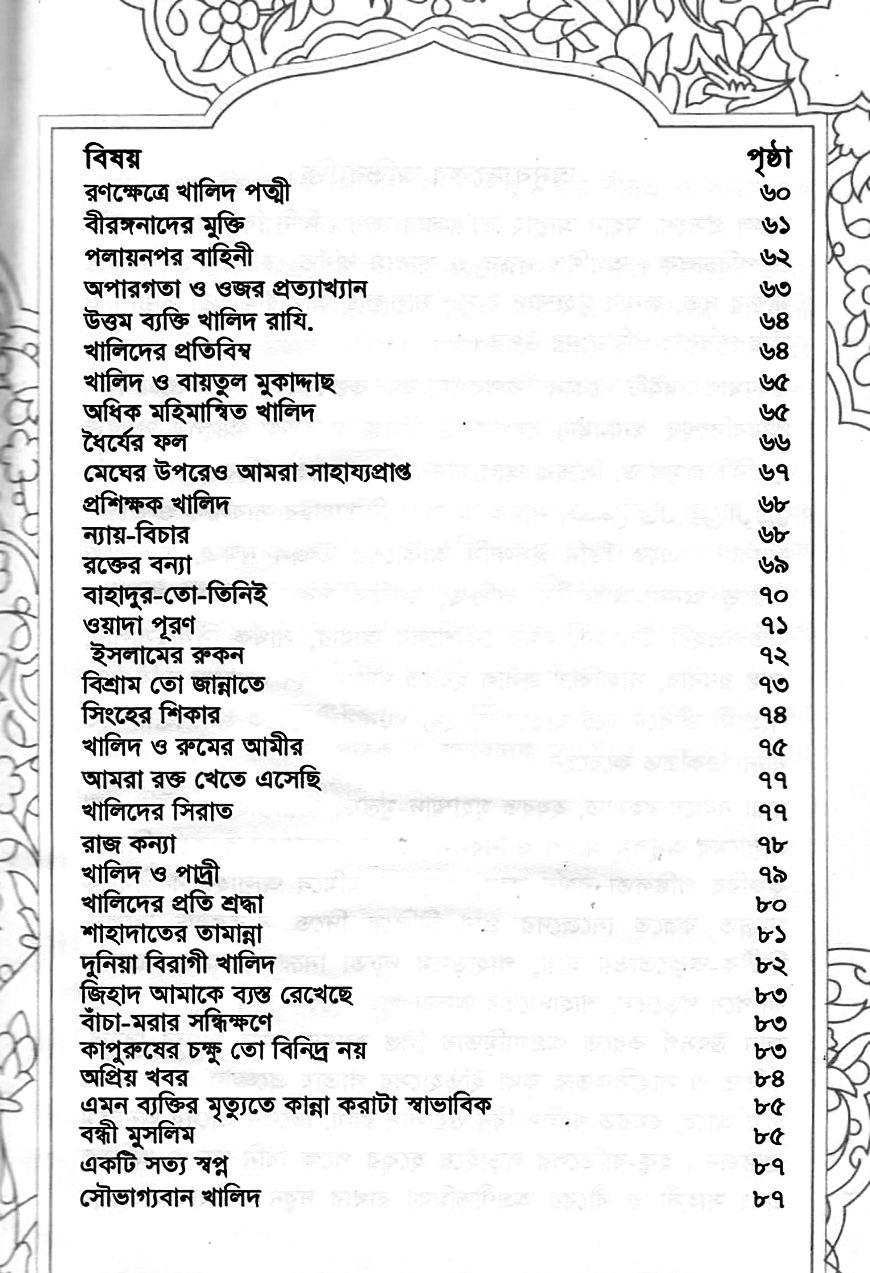 বিষয় পৃষ্ঠা
রণক্ষেত্রে খালিদ পত্মী ৬০
বীরঙ্গনাদের মুক্তি ৬১
পলায়নপর বাহিনী ৬২
অপারগতা ও ওজর প্রত্যাখ্যান ৬৩
উত্তম ব্যক্তি খালিদ রাযি. ৬৪
খালিদের প্রতিবিম্ব ৬৪
খালিদ ও বায়তুল মুকাদ্দাছ ৬৫
অধিক মহিমান্বিত খালিদ ৬৫
ধৈর্যের ফল ৬৬
মেঘের উপরেও আমরা সাহায্যপ্রাপ্ত ৬৭
প্রশিক্ষক খালিদ ৬৮
ন্যায়-বিচার ৬৮
রক্তের বন্যা ৬৯
বাহাদুর-তো-তিনিই ৭০
ওয়াদা পূরণ ৭১
ইসলামের রুকন ৭২
বিশ্রাম তো জান্নাতে ৭৩
সিংহের শিকার ৭৪
খালিদ ও রুমের আমীর ৭৫
আমরা রক্ত খেতে এসেছি ৭৭
খালিদের সিরাত ৭৭
রাজ কন্যা ৭৮
খালিদ ও পাদ্রী ৭৯
খালিদের প্রতি শ্রদ্ধা ৮০
শাহাদাতের তামান্না ৮১
দুনিয়া বিরাগী খালিদ ৮২
জিহাদ আমাকে ব্যস্ত রেখেছে ৮৩
বাঁচা-মরার সন্ধিক্ষণে ৮৩
কাপুরুষের চক্ষু তো বিনিদ্র নয় ৮৩
অপ্রিয় খবর ৮৪
এমন ব্যক্তির মৃত্যুতে কান্না করাটা স্বাভাবিক ৮৫
বন্ধী মুসলিম ৮৫
একটি সত্য স্বপ্ন ৮৭
সৌভাগ্যবান খালিদ ৮৭